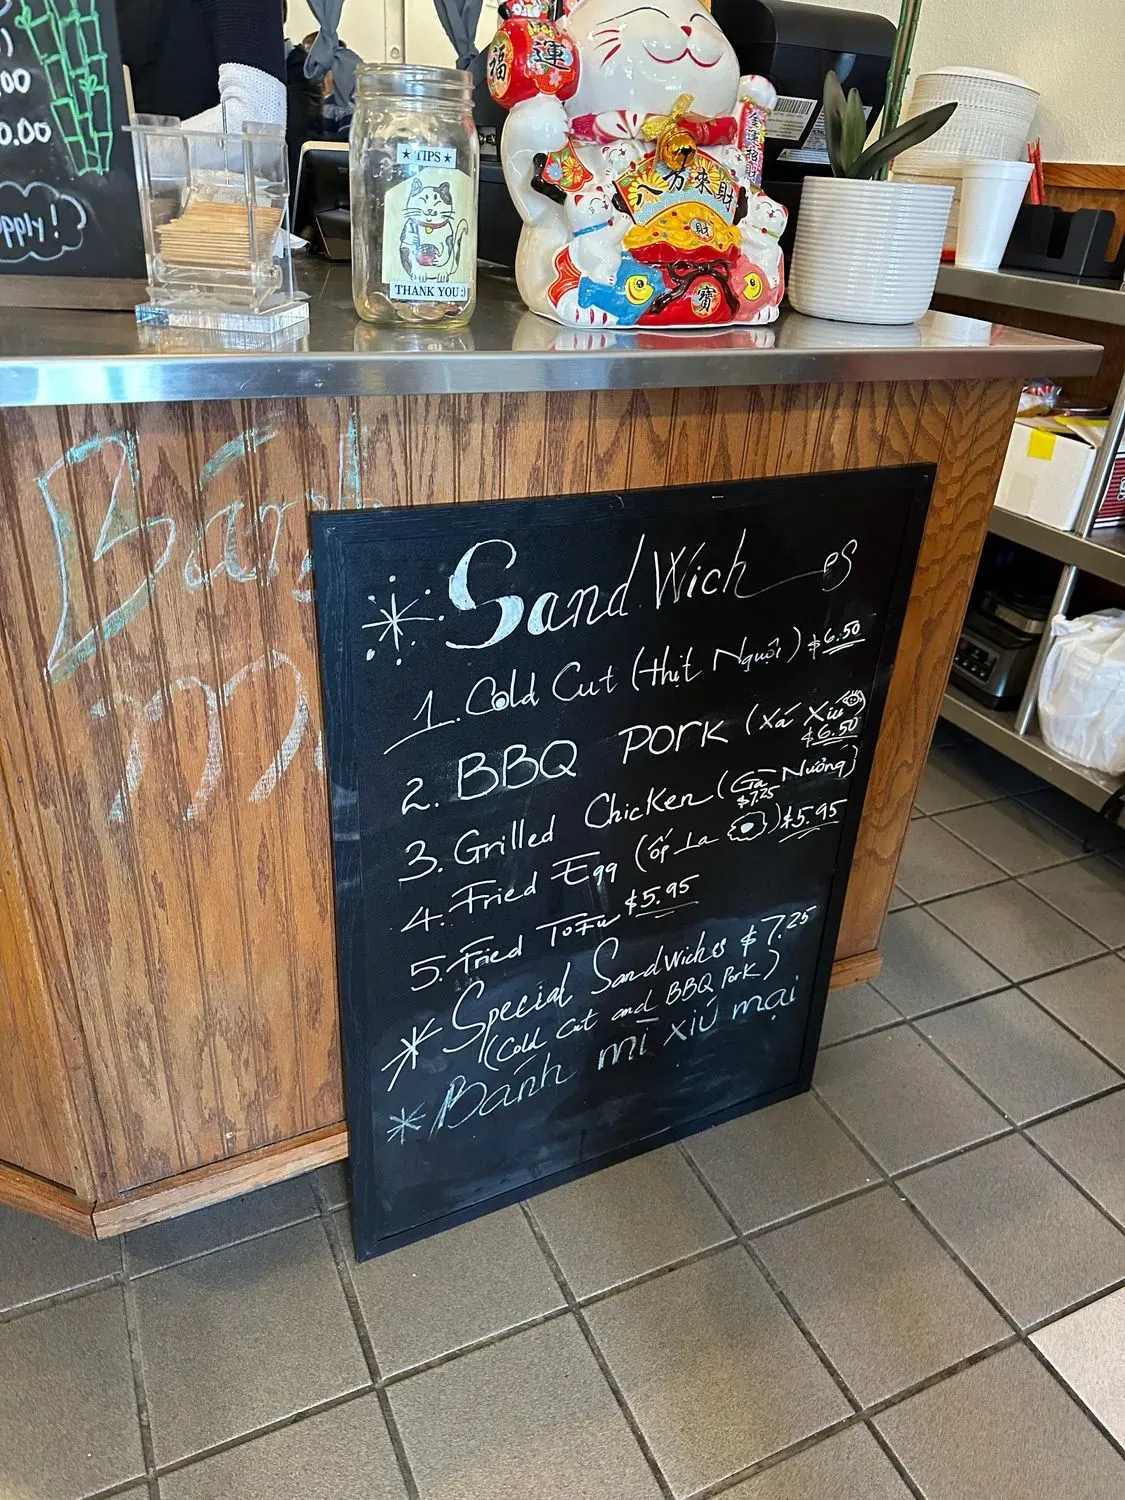 .00
0.00
pply!
★ TIPS ★
THANK YOU :)
福 運
八方來財
財
寶
金運招財
Bánh
m
SandWiches
1. Cold Cut (thịt Nguội) $6.50
2. BBQ Pork (Xá Xíu
$6.50
3. Grilled Chicken (Gà Nướng)
$7.25
4. Fried Egg (ốp La ) $5.95
5. Fried ToFu $5.95
* Special SandWiches $7.25
(Cold Cut and BBQ Pork)
* Bánh mì xíu mại